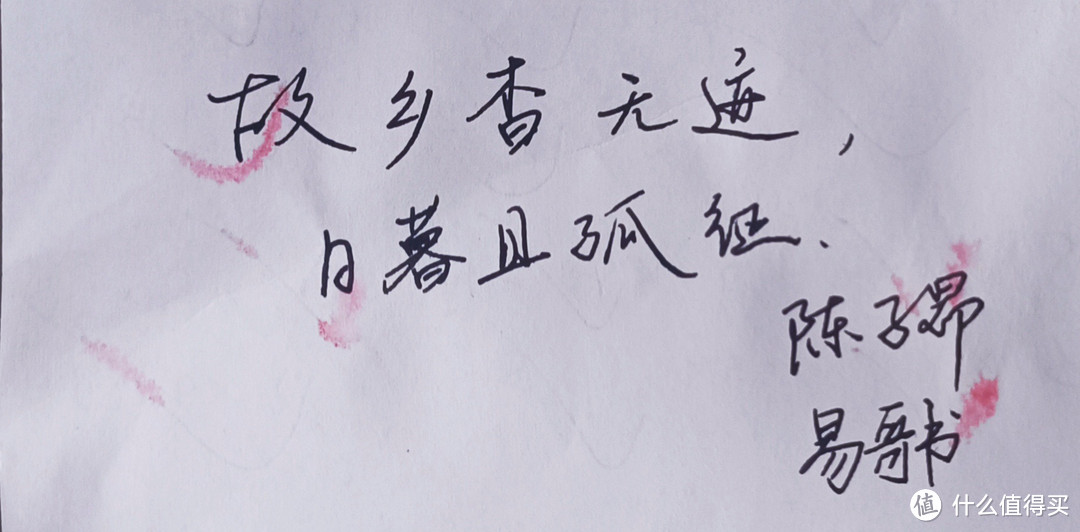 故乡杳无迹，
日暮且孤征、
陈子昂
易哥书
值 什么值得买